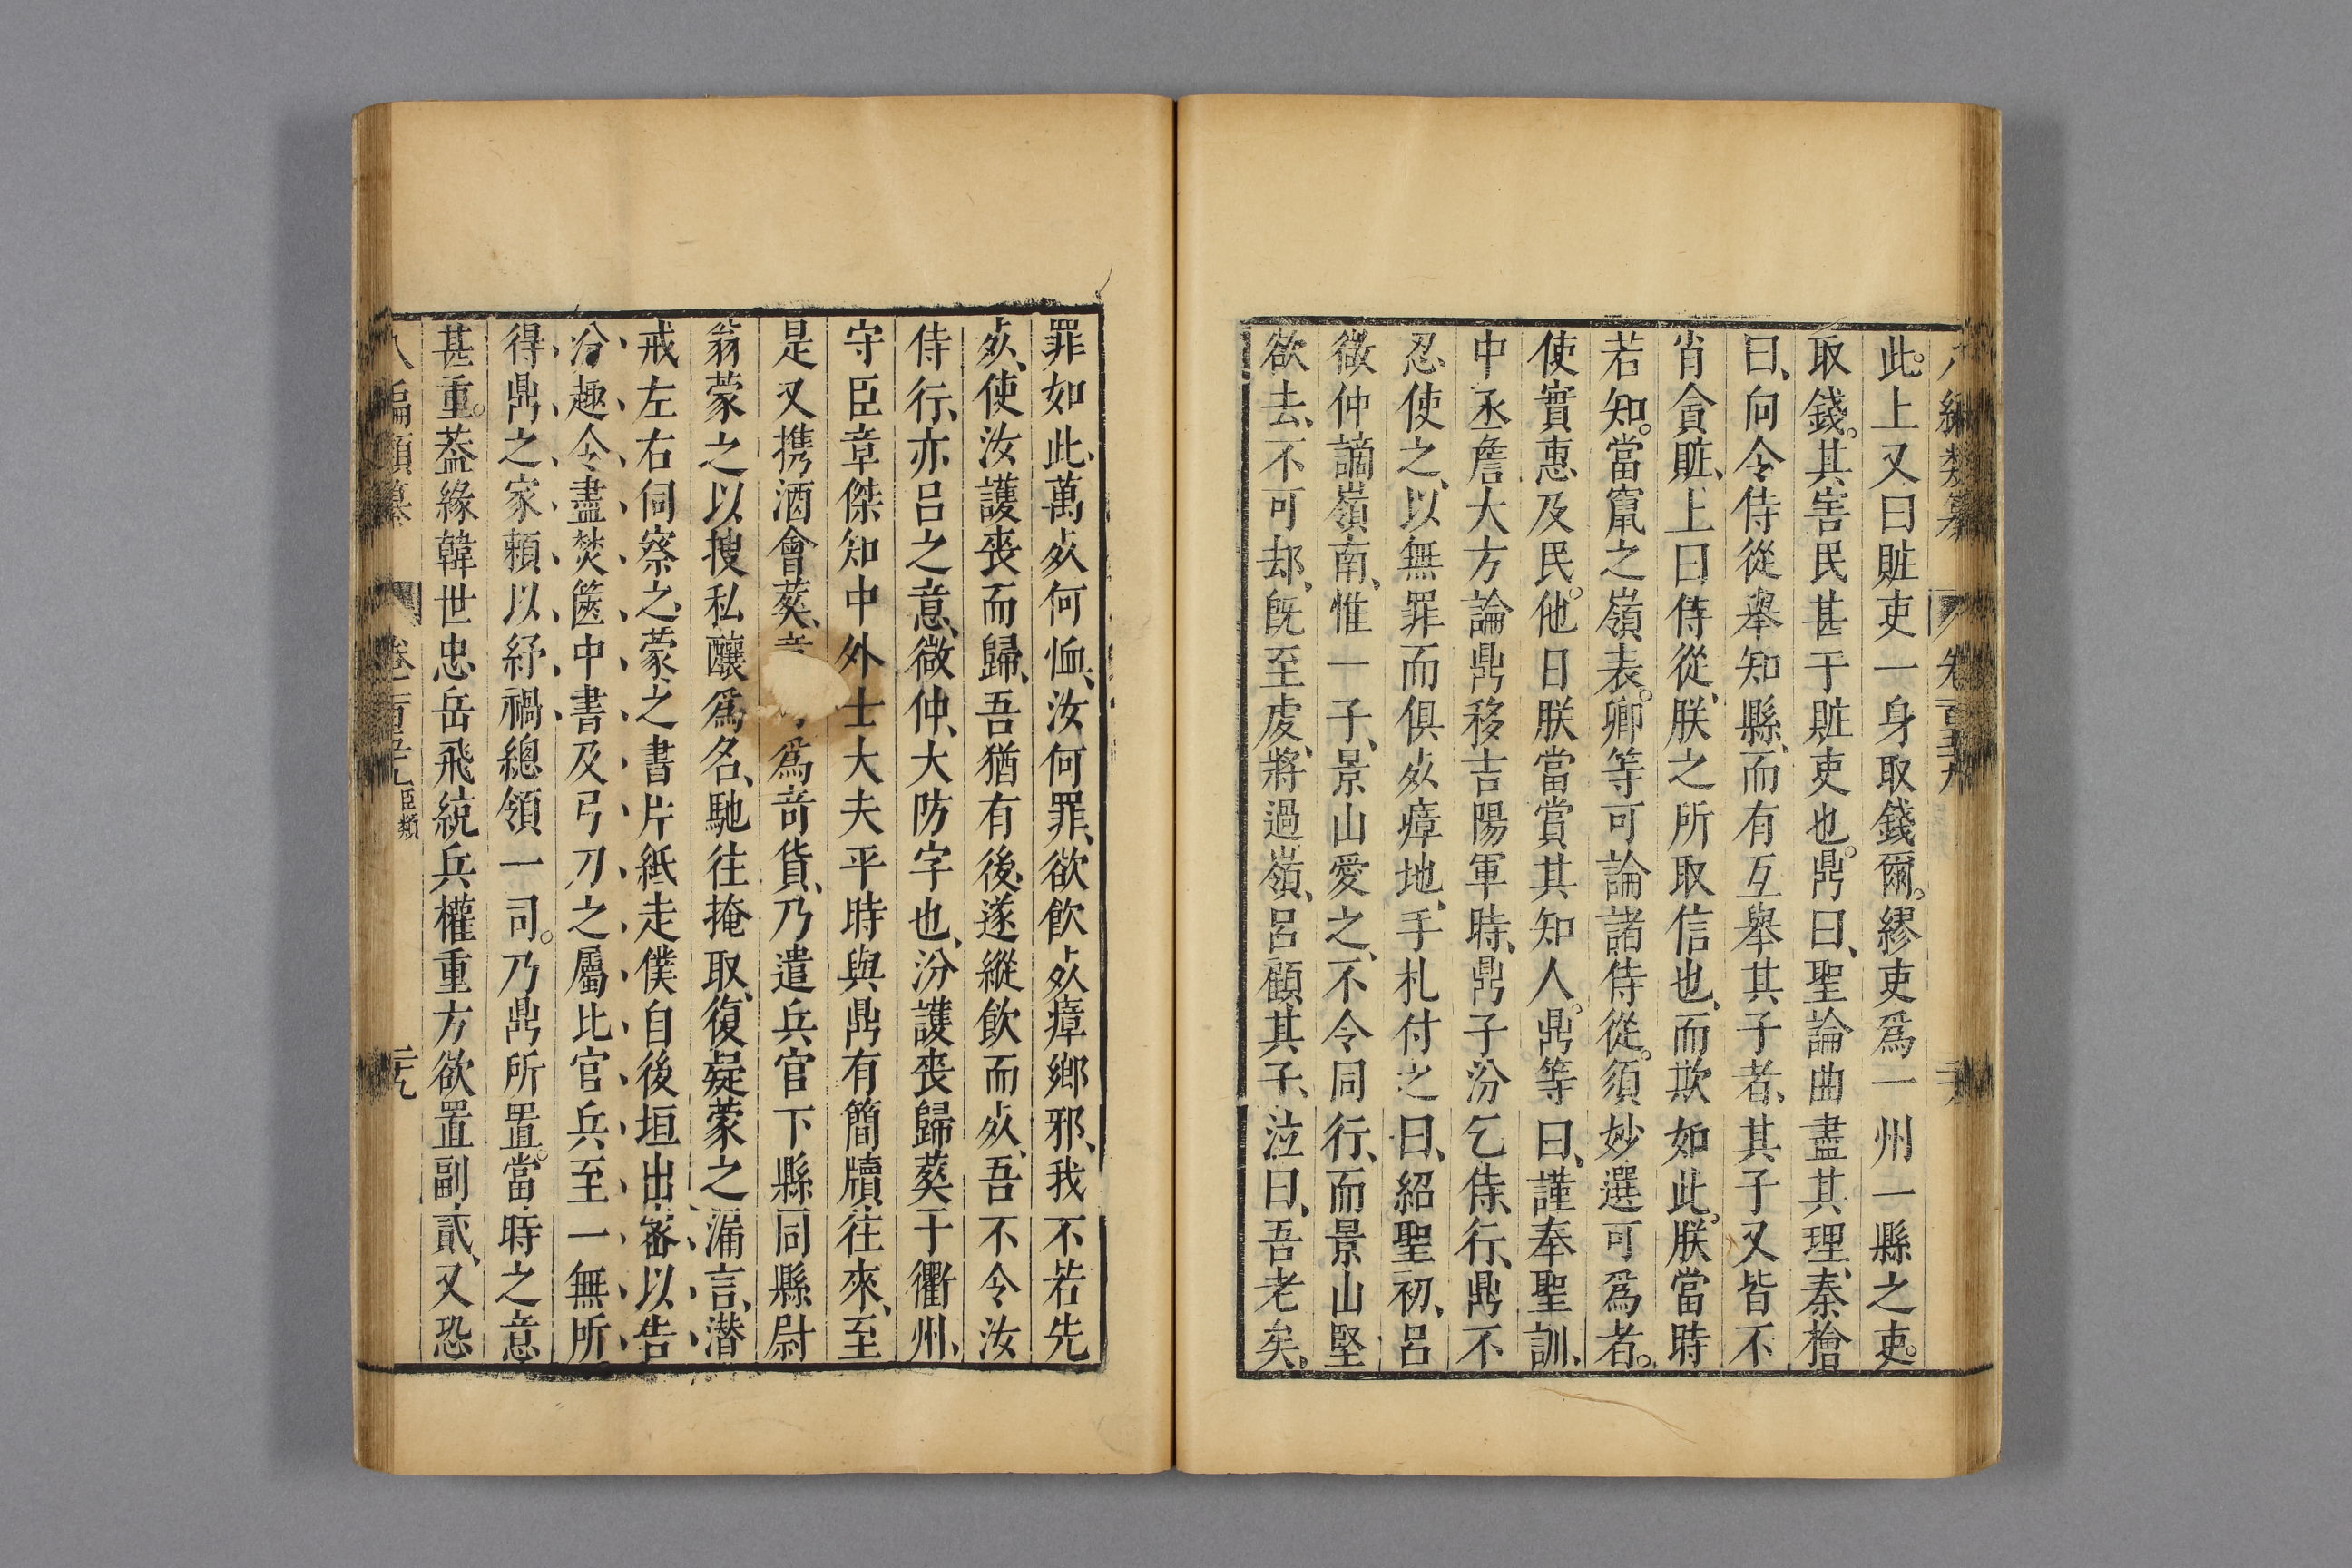 八編類纂 卷百五十九
此。上又曰賍吏一身取錢爾。繆吏爲一州一縣之吏。
取錢。其害民甚于賍吏也。鼎曰、聖論曲盡其理、秦檜
曰、向令侍從舉知縣、而有互舉其子者、其子又皆不
肖貪賍、上曰侍從、朕之所取信也、而欺如此。朕當時
若知。當竄之嶺表。卿等可論諸侍從。須妙選可爲者。
使實惠及民。他日朕當賞其知人。鼎等曰、謹奉聖訓、
中丞詹大方論鼎移吉陽軍時、鼎子汾乞侍行、鼎不
忍使之、以無罪而俱死瘴地、手札付之曰、紹聖初、呂
微仲謫嶺南、惟一子、景山愛之、不令同行、而景山堅
欲去、不可却、既至虔、將過嶺、呂顧其子、泣曰、吾老矣。
罪如此、萬死何恤、汝何罪、欲飲死瘴鄉邪、我不若先
死、使汝護喪而歸、吾猶有後、遂縱飲而死、吾不令汝
侍行、亦呂之意、微仲、大防字也、汾護喪歸葬于衢州、
守臣章傑知中外士大夫平時與鼎有簡牘往來、至
是又携酒會葬、意爲竒貨、乃遣兵官下縣同縣尉
翁蒙之以搜私釀爲名、馳往掩取、復疑蒙之漏言、潛
戒左右伺察之、蒙之書片紙走僕自後垣出密以告
汾趣令盡焚篋中書及弓刀之屬比官兵至一無所
得鼎之家賴以紓禍總領一司。乃鼎所置。當時之意
甚重。葢緣韓世忠岳飛統兵兵權重方欲置副貳、又恐
八編類纂 卷百五十九 臣類 二十九